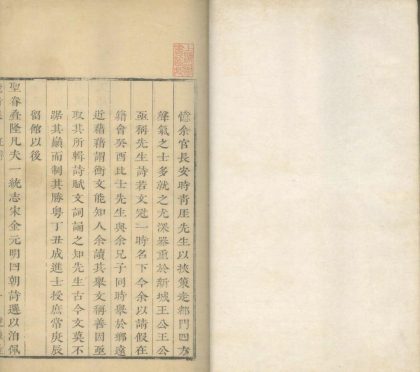 憶余官長安時青厓先生以挾策走都門四方
聲氣之士多就之尤深器重於新城王公王公
亟稱先生詩若文冠一時名下今余以請假在
籍會癸酉比士先生與余兄子同時舉於鄉遠
近藉藉謂衡文能知人余讀其舉文稱善因亟
取其所輯詩賦文詞誦之知先生古今文莫不
躋其巔而制其勝粤丁丑成進士授庶常庚辰
留館以後
聖眷彞隆凡夫一統志宋金元明四朝詩選以洎佩